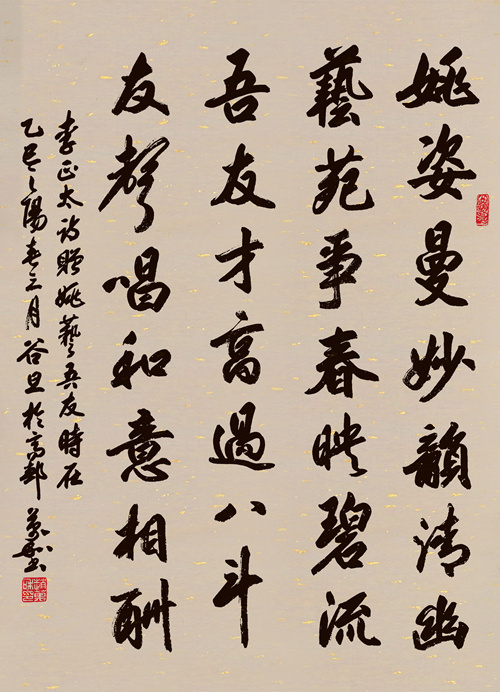 姚姿曼妙韻清幽
藝苑爭春映碧流
吾友才高過八斗
友聲唱和意相酬
李正太詩贈姚藝吾友時在
乙巳之陽春三月谷旦於高郵